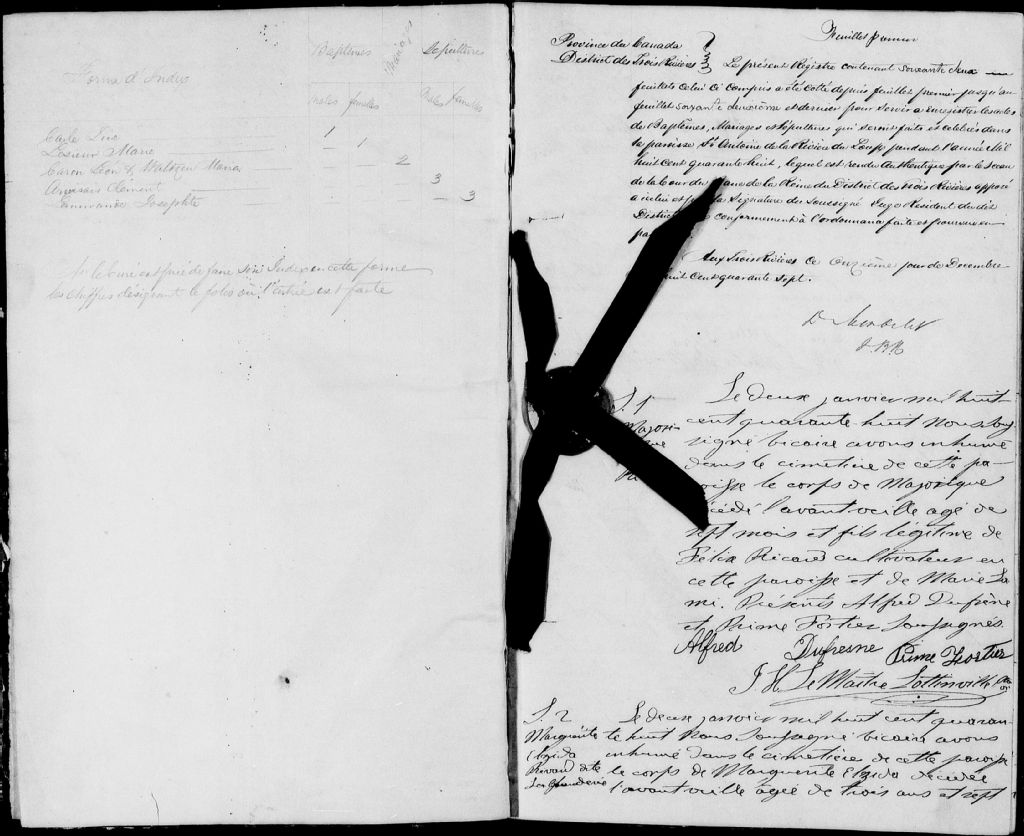 Forme d'Index
Baptêmes Mariages Sépultures
mâles femelles mâles femelles
1
Lesieur Marie 1
Caron Léon & Marie 2
Clément 3
Josephte 3
Mr le Curé est prié de faire son Index en cette forme
les chiffres désignant le folio où l'entrée est faite
Feuillet premier
Province du Canada
District des Trois Rivières Le présent Régistre contenant soixante deux
feuillets celui ci compris a été côté depuis feuillet premier jusqu'au
feuillet soixante deuxième et dernier pour servir à enregistrer les actes
de Baptêmes, Mariages et Sépultures qui seront faits et célébrés dans
la paroisse St Antoine de la Rivière du Loup pendant l'année Mil
huit cent quarante huit, lequel est rendu Authentique par le Sceau
de la Cour du Banc de la Reine du District des Trois Rivières apposé
a icelui et par la Signature du Soussigné Juge Resident du dit
District conformement à l'ordonnance faite et pourvue en
Aux Trois Rivières ce onzième jour de Decembre
huit Cent quarante Sept.
D Mondelet
J B R
S. 1 Le deux janvier mil huit
Majori- cent quarante huit Nous sous
signé vicaire avons inhumé
dans le cimetière de cette pa-
roisse le corps de Majorique
décédé l'avant veille agé de
sept mois et fils légitime de
Félix Ricard cultivateur en
cette paroisse et de Marie La
mi. Présents Alfred Dufrêne
et Prime Fortier Soussignés
Alfred Dufresne Prime Fortier
J. H. Le Maître Lottinville
S. 2 Le deux janvier mil huit cent quaran
Marguérite te huit Nous Soussigné vicaire avons
Elzida inhumé dans le cimetière de cette paroisse
Rivard dite le corps de Marguerite Elzida décédée
l'avant veille agée de trois ans et sept